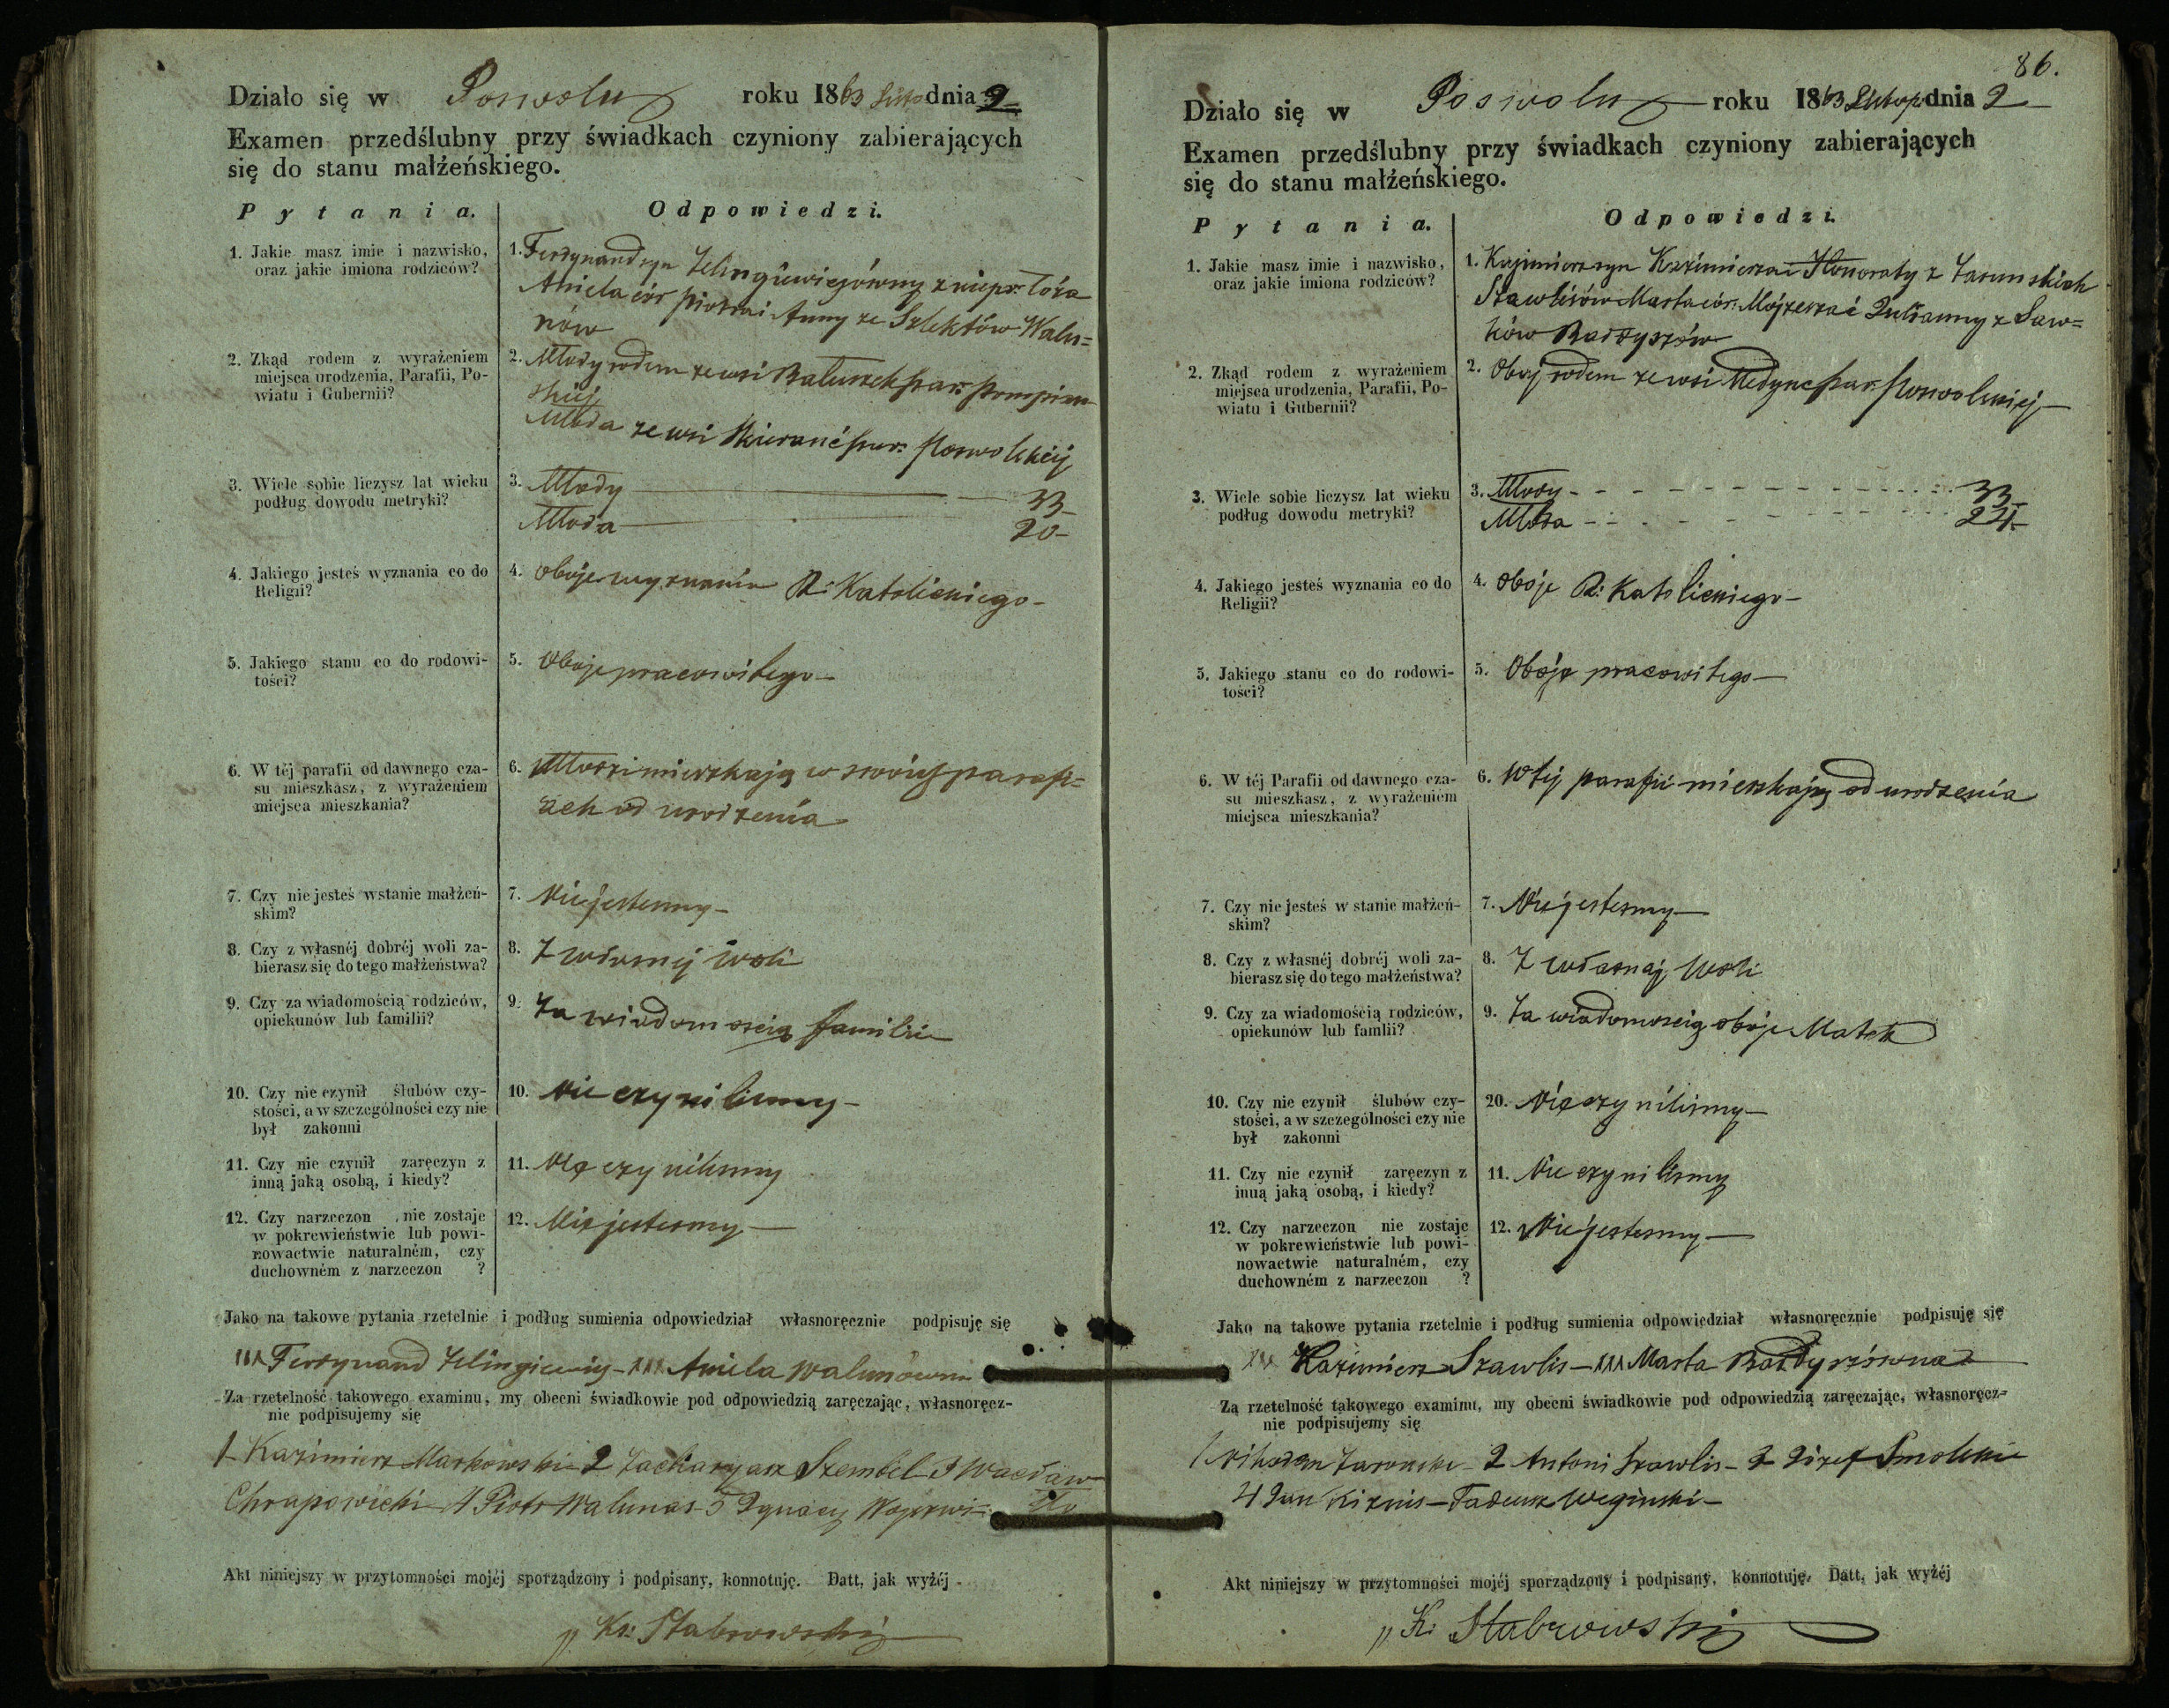 Działo się w Poswolu roku 1863 Listo dnia 2
Examen przedślubny przy świadkach czyniony zabierających
się do stanu małżeńskiego.
Pytania. Odpowiedzi.
1. Jakie masz imie i nazwisko,
oraz jakie imiona rodziców?
1. Ferdynand syn Zelingiewiczówny z niepr. łoża
Aniela cór Piotra i Anny ze Szlektów Walu=
nów
2. Zkąd rodem z wyrażeniem
miejsca urodzenia, Parafii, Po-
wiatu i Gubernii?
2. Młody rodem ze wsi par:
skiéj
Młoda ze wsi par: Poswolskiéj
3. Wiele sobie liczysz lat wieku
podług dowodu metryki?
3. Młody 33
Młoda 20
4. Jakiego jesteś wyznania co do
Religii?
4. Oboje wyznania R: Katolickiego
5. Jakiego stanu co do rodowi-
tości?
5. Oboje pracowitego
6. W téj parafii od dawnego cza-
su mieszkasz, z wyrażeniem
miejsca mieszkania?
6. Młodzi mieszkają w swoich parafi=
ach od urodzenia
7. Czy nie jesteś wstanie małżeń-
skim?
7. Nie jestesmy
8. Czy z własnéj dobréj woli za-
bierasz się do tego małżeństwa?
8. Z własnéj woli
9. Czy za wiadomością rodziców,
opiekunów lub familii?
9. Za wiadomością familii
10. Czy nie czynił ślubów czy-
stości, a w szczególności czy nie
był zakonni
10. Nie czynilismy
11. Czy nie czynił zaręczyn z
inną jaką osobą, i kiedy?
11. Nie czynilismy
12. Czy narzeczon nie zostaje
w pokrewieństwie lub powi-
nowactwie naturalném, czy
duchowném z narzeczon ?
12. Nie jestesmy
Jako na takowe pytania rzetelnie i podług sumienia odpowiedział własnoręcznie podpisuję się
xxx Ferdynand Zelingiewicz - xxx Aniela Walunówna
Za rzetelność takowego examinu, my obecni świadkowie pod odpowiedzią zaręczając, własnoręcz-
nie podpisujemy się
1 Kazimierz Markowski 2 Zacharyasz Szembel 3 Wacław
Chrapowicki 4 Piotr Walunas 5 Ignacy
Akt niniejszy w przytomności mojéj sporządzony i podpisany, konnotuję. Datt, jak wyżéj
Ks: Stabrowski
86.
Działo się w Poswolu roku 1863 Listop dnia 2
Examen przedślubny przy świadkach czyniony zabierających
się do stanu małżeńskiego.
Pytania. Odpowiedzi.
1. Jakie masz imie i nazwisko,
oraz jakie imiona rodziców?
1. Kazimierz syn Kazimierza i Honoraty z Zarunskich
Szawlisów Marta cór: Mojżesza i Julianny z Saw=
ków Bardyszów
2. Zkąd rodem z wyrażeniem
miejsca urodzenia, Parafii, Po-
wiatu i Gubernii?
2. Oboje rodem ze wsi Medyne par: Poswolskiej
3. Wiele sobie liczysz lat wieku
podług dowodu metryki?
3. Młody 33
Młoda 24
4. Jakiego jesteś wyznania co do
Religii?
4. Oboje R: Katolickiego
5. Jakiego stanu co do rodowi-
tości?
5. Oboje pracowitego
6. W téj Parafii od dawnego cza-
su mieszkasz, z wyrażeniem
miejsca mieszkania?
6. W téj parafii mieszkają od urodzenia
7. Czy nie jesteś w stanie małżeń-
skim?
7. Nie jestesmy
8. Czy z własnéj dobréj woli za-
bierasz się do tego małżeństwa?
8. Z własnej woli
9. Czy za wiadomością rodziców,
opiekunów lub famlii?
9. Za wiadomością oboje Matek
10. Czy nie czynił ślubów czy-
stości, a w szczególności czy nie
był zakonni
20. Nie czynilismy
11. Czy nie czynił zaręczyn z
inną jaką osobą, i kiedy?
11. Nie czynilismy
12. Czy narzeczon nie zostaje
w pokrewieństwie lub powi-
nowactwie naturalném, czy
duchowném z narzeczon ?
12. Nie jestesmy
Jako na takowe pytania rzetelnie i podług sumienia odpowiedział własnoręcznie podpisuję się
xxx Kazimierz Szawlis - xxx Marta Bardyszówna
Za rzetelność takowego examinu, my obecni świadkowie pod odpowiedzią zaręczając, własnoręcz-
nie podpisujemy się
1 2 Antoni Szawlis - 3 Józef Smolski
4 Jan Kiznis - Tadeusz Weginski
Akt niniejszy w przytomności mojéj sporządzony i podpisany, konnotuję. Datt, jak wyżéj
K: Stabrowski